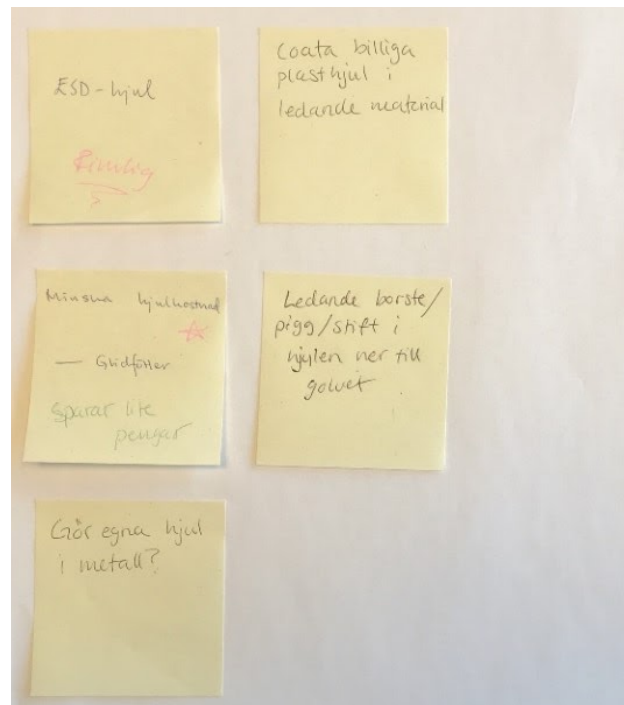 ESD-hjul
Rimlig
Coata billiga
plasthjul i
ledande material
Minska hjulkostnad
— Glidfötter
Sparar lite
pengar
Ledande borste/
pigg/stift i
hjulen ner till
golvet
Gör egna hjul
i metall?